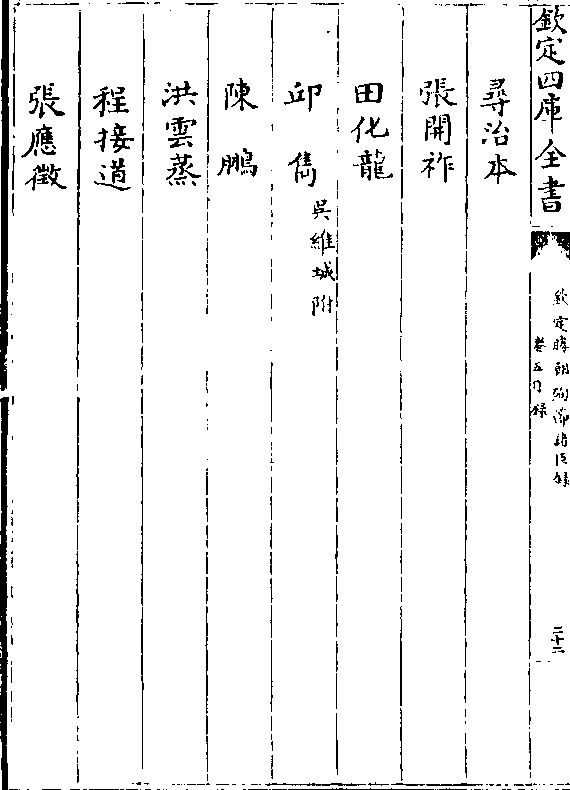 欽定四庫全書
欽定勝朝殉節諸臣錄
卷五目錄
二十二
尋治本
張開祚
田化龍
邱雋
吳維城附
陳鵬
洪雲蒸
程接道
張應徵